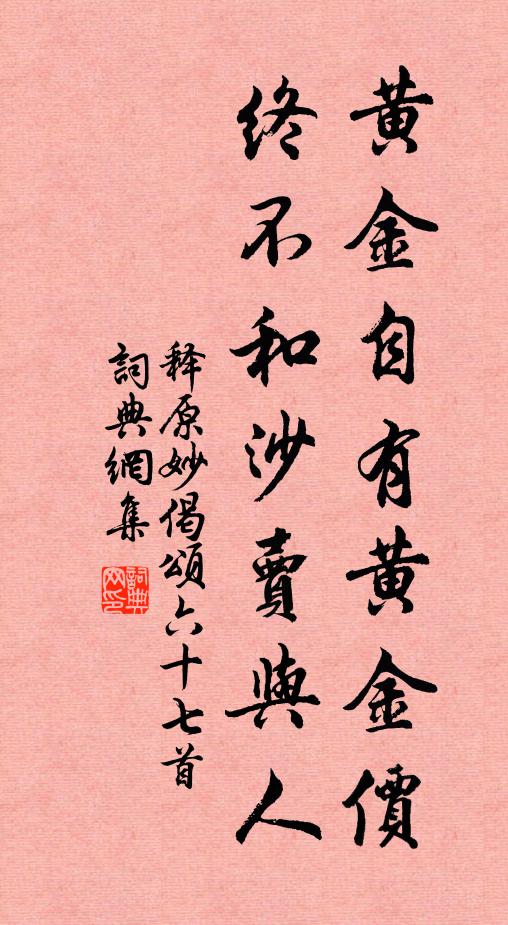 黄金自有黄金價
終不和沙賣與人
释原妙偈頌六十七首
詞典網集
詞典
网印